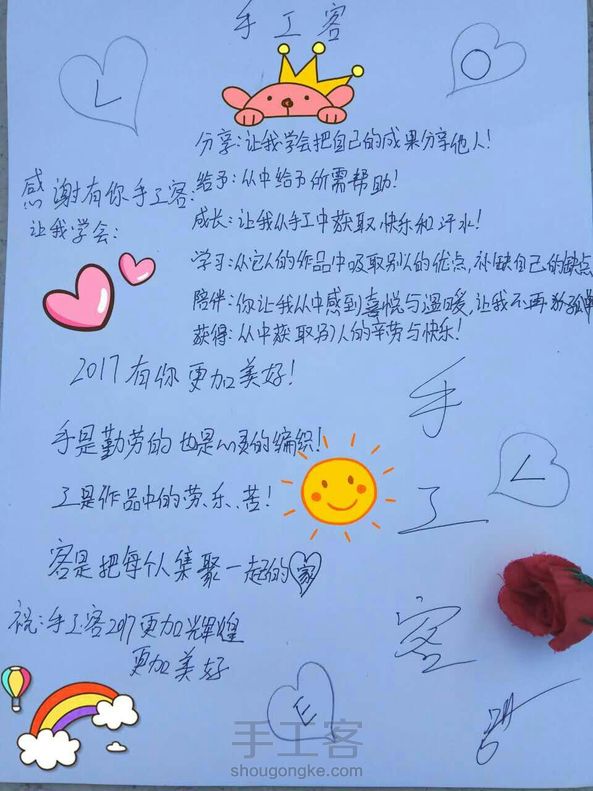 手工客
L
O
分享:让我学会把自己的成果分享他人!
感谢有你手工客:
让我学会:
给予:从中给予所需帮助!
成长:让我从手工中获取快乐和汗水!
学习:从它人的作品中吸取别人的优点,补缺自己的缺点
陪伴:你让我从中感到喜悦与温暖,让我不再
获得:从中获取别人的辛劳与快乐!
2017有你更加美好!
手是勤劳的也是心灵的编织!
工是作品中的劳、乐、苦!
客是把每个人集聚一起的家
祝:手工客2017更加辉煌
更加美好
手
工
客
L
E
手工客
shougongke.com